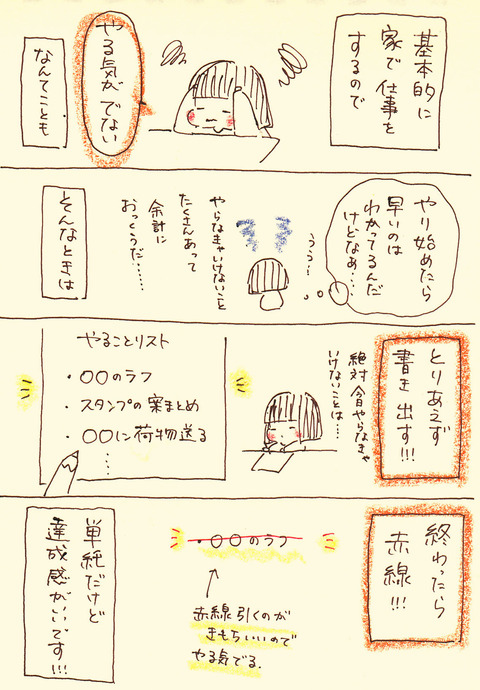 基本的に
家で仕事を
するので
やる気が でない
なんてことも
やり始めたら
早いのは
わかってるんだ
けどなぁ・・・
うぅ…
やらなきゃいけないこと
たくさんあって
余計に
おっくうだ……
そんなときは
とりあえず
書き出す!!!
絶対今やらなきゃ
いけないことは…
やることリスト
・〇〇のラフ
・スタンプの案まとめ
・〇〇に荷物送る
……
終わったら
赤線!!!
・〇〇のラフ
赤線引くのが
きもちいいので
やる気でる.
単純だけど
達成感がいいです!!!